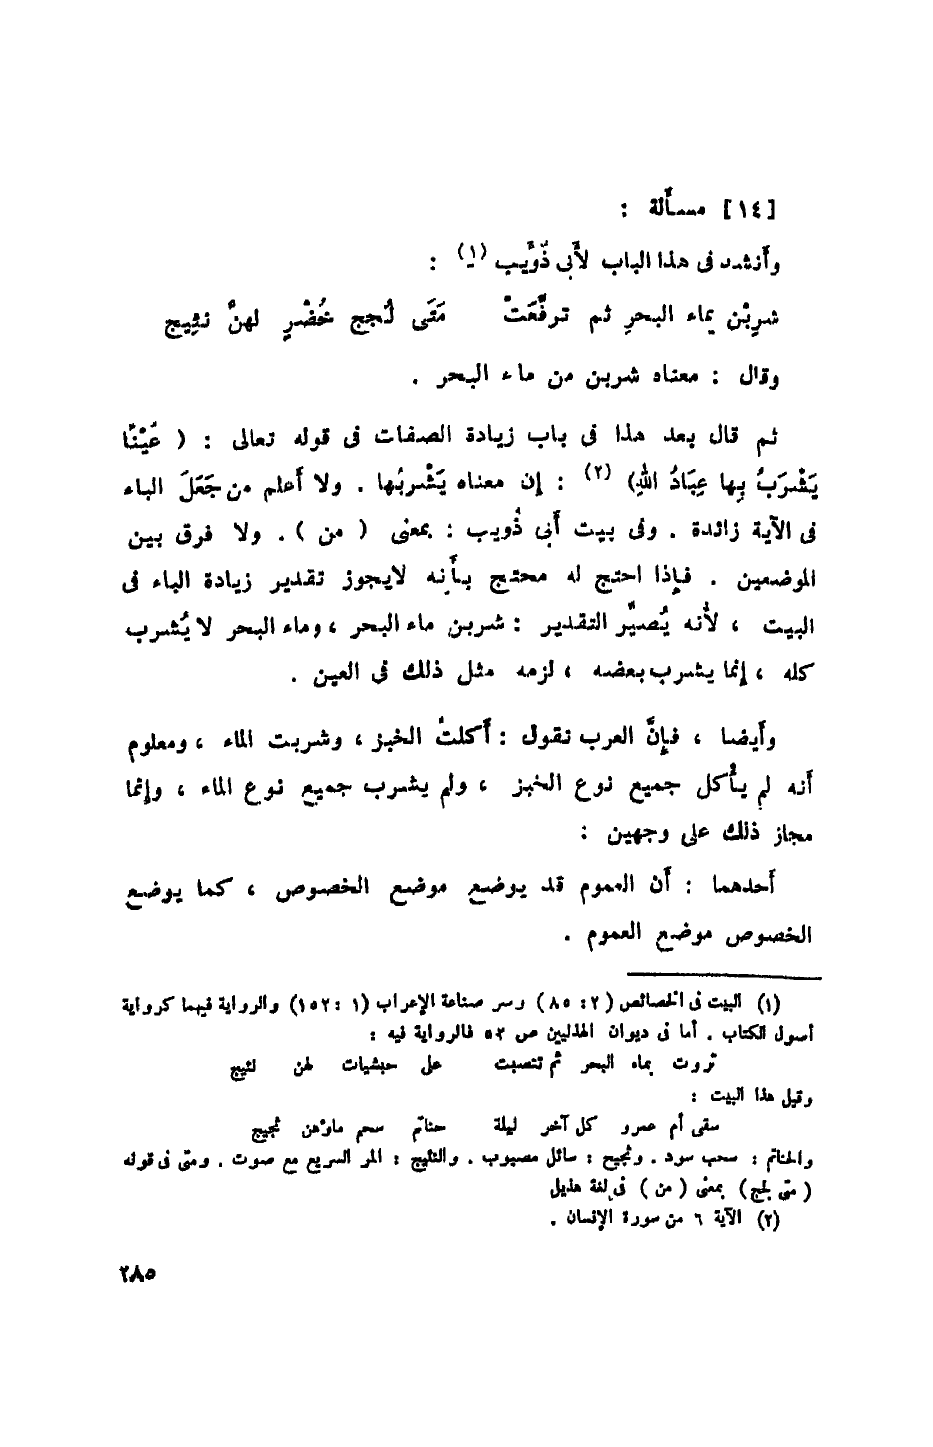 [١٤] مسألة :
وأنشد فى هذا الباب لأَبى ذُؤَيب (١) :
شرِبْن بماء البحرِ ثم ترفَّعَتْ مَتَى لُججٍ خُضْرٍ لهنَّ نئِيج
وقال : معناه شربن من ماء البحر .
ثم قال بعد هذا فى باب زيادة الصفات فى قوله تعالى : ( عَيْنًا
يَشْرَبُ بِها عِبَادُ اللهِ) (٢) : إن معناه يَشْربُها . ولا أَعلم من جَعَلَ الباء
فى الآية زائدة . وفى بيت أَبى ذُويب : بمعنى ( من ) . ولا فرق بين
الموضعين . فإذا احتج له محتج بأَنه لايجوز تقدير زيادة الباء فى
البيت ، لأَنه يُصيِّر التقدير : شربن ماء البحر ، وماء البحر لا يُشرب
كله ، إنما يشرب بعضه ، لزمه مثل ذلك فى العين .
وأَيضا ، فإنَّ العرب تقول : أَكلتُ الخبز ، وشربت الماء ، ومعلوم
أَنه لم يأْكل جميع نوع الخبز ، ولم يشرب جميع نوع الماء ، وإنما
مجاز ذلك على وجهين :
أَحدهما : أَن العموم قد يوضع موضع الخصوص ، كما يوضع
الخصوص موضع العموم .
(١) البيت فى الخصائص (٢ : ٨٥) وسر صناعة الإعراب (١ : ١٥٢) والرواية فيهما كرواية
أصول الكتاب . أما فى ديوان الهذليين ص ٥٢ فالرواية فيه :
تروت بماء البحر ثم تنصبت على حبشيات لهن نئيج
وقيل هذا البيت :
سقى أم عمرو كل آخر ليلة حناتم سحم ماؤهن ثجيج
والحناتم : سحب سود . وثجيج : سائل مصبوب . والنئيج : المر السريع مع صوت . ومتى فى قوله
( متى لجج) بمعنى ( من ) فى لغة هذيل
(٢) الآية ٦ من سورة الإنسان .
٢٨٥